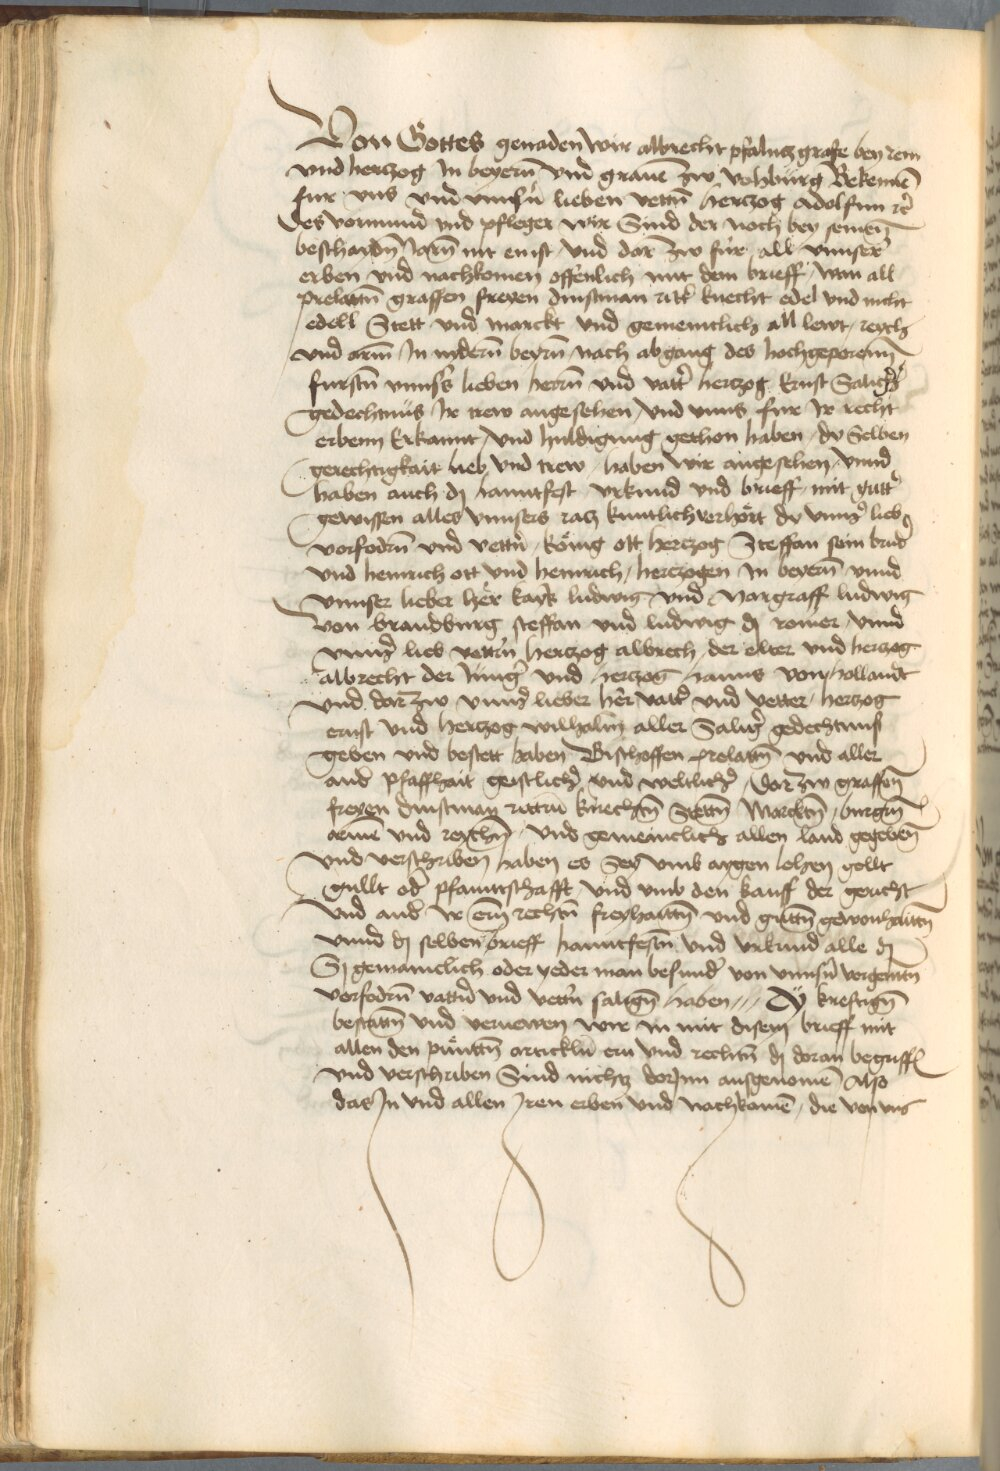 Von Gottes genaden wir albrecht pfalntzgrafe bey rein
vnd hertzog In beyern̄ vnd grauē zw vohburg Bekennē
fur vns vnd vnnsn̄ lieben vettn̄ hertzog adolfum rc̄
Des vormund vnd pfleger wir Sind der noch bey seinen̄
beschaidn̄ Jarn̄ nit enist vnd dar zw für all vnnser
erben vnd nachkomen offenlich mit dem brieff wan all
prelattn̄ graffen freyen dinstman ritt' knecht edel vnd nicht
edell Stett vnd marckt vnd gemeintlich all lewt reych
vnd arm In nydern̄ beyrn̄ nach abgang des hochgeporenn̄
furstn̄ vnnsers lieben herrn̄ vnd vatt' hertzog Ernst Salig'
gedechtnüs Ir trew angesehen vnd vnns fur Ir recht
erbenn Erkannt vnd huldigung gethon haben dy Selben
gerechtigkait lieb vnd trew haben wir angesehen vnnd
haben auch dj hanntfest vrkund vnd brieff mit gutt'
gewissen alles vnnsers ratz kuntlich verhört dy vnns' lieb
vorfodrn̄ vnd vettn̄ könig ott hertzog Steffan sein brud'
vnd heinrich ott vnd heinrich hertzogen In beyern̄ vnnd
vnnser lieber her kayß ludwig vnd Margraff ludwig
von brandburg steffan vnd ludwig dj romer vnnd
vnns' lieb vettn̄ hertzog albrech der elter vnd hertzog
albrecht der Jüng' vnd hertzog hanns von hollandt
vnd dar zw vnns' lieber her vatt' vnd vetter hertzog
ernst vnd hertzog wilhalm aller Salig' gedechtnuß
geben vnd bestett haben Bischoffen prelattn̄ vnd aller
and' pfaffhait geistlich' vnd weltlich' dar zw graffen
freyen dinstman rittrn̄ knechtn̄ Stettn̄ Marcktn̄ burgn̄
armē vnd reychn̄ vnd gemeintlich allen land gegeben
vnd verschriben haben es Sey vmb aygen lehen gollt
gullt od' pfanntschafft vnd vmb den kauff der gericht
vnd and' Ir ern̄ rechtn̄ freyhaittn̄ vnd guttn̄ gewonhaittn̄
vnnd dj selben brieff hanntfestn̄ vnd vrkund alle dj
Sj gemainclich oder yeder man besund' von vnnsn̄ vorgenttn̄
vorfodrn̄ vattn̄ vnd vettn̄ salign̄ haben Dy kreftign̄
bestättn̄ vnd vernewen wir in mit disem brieff mit
allen den pünttn̄ artickln̄ ern vnd rechtn̄ dj doran begriffē
vnd verschriben Sind nichtz dorJnn ausgenomē Also
das In vnd allen Iren erben vnd nachkomē die von vns